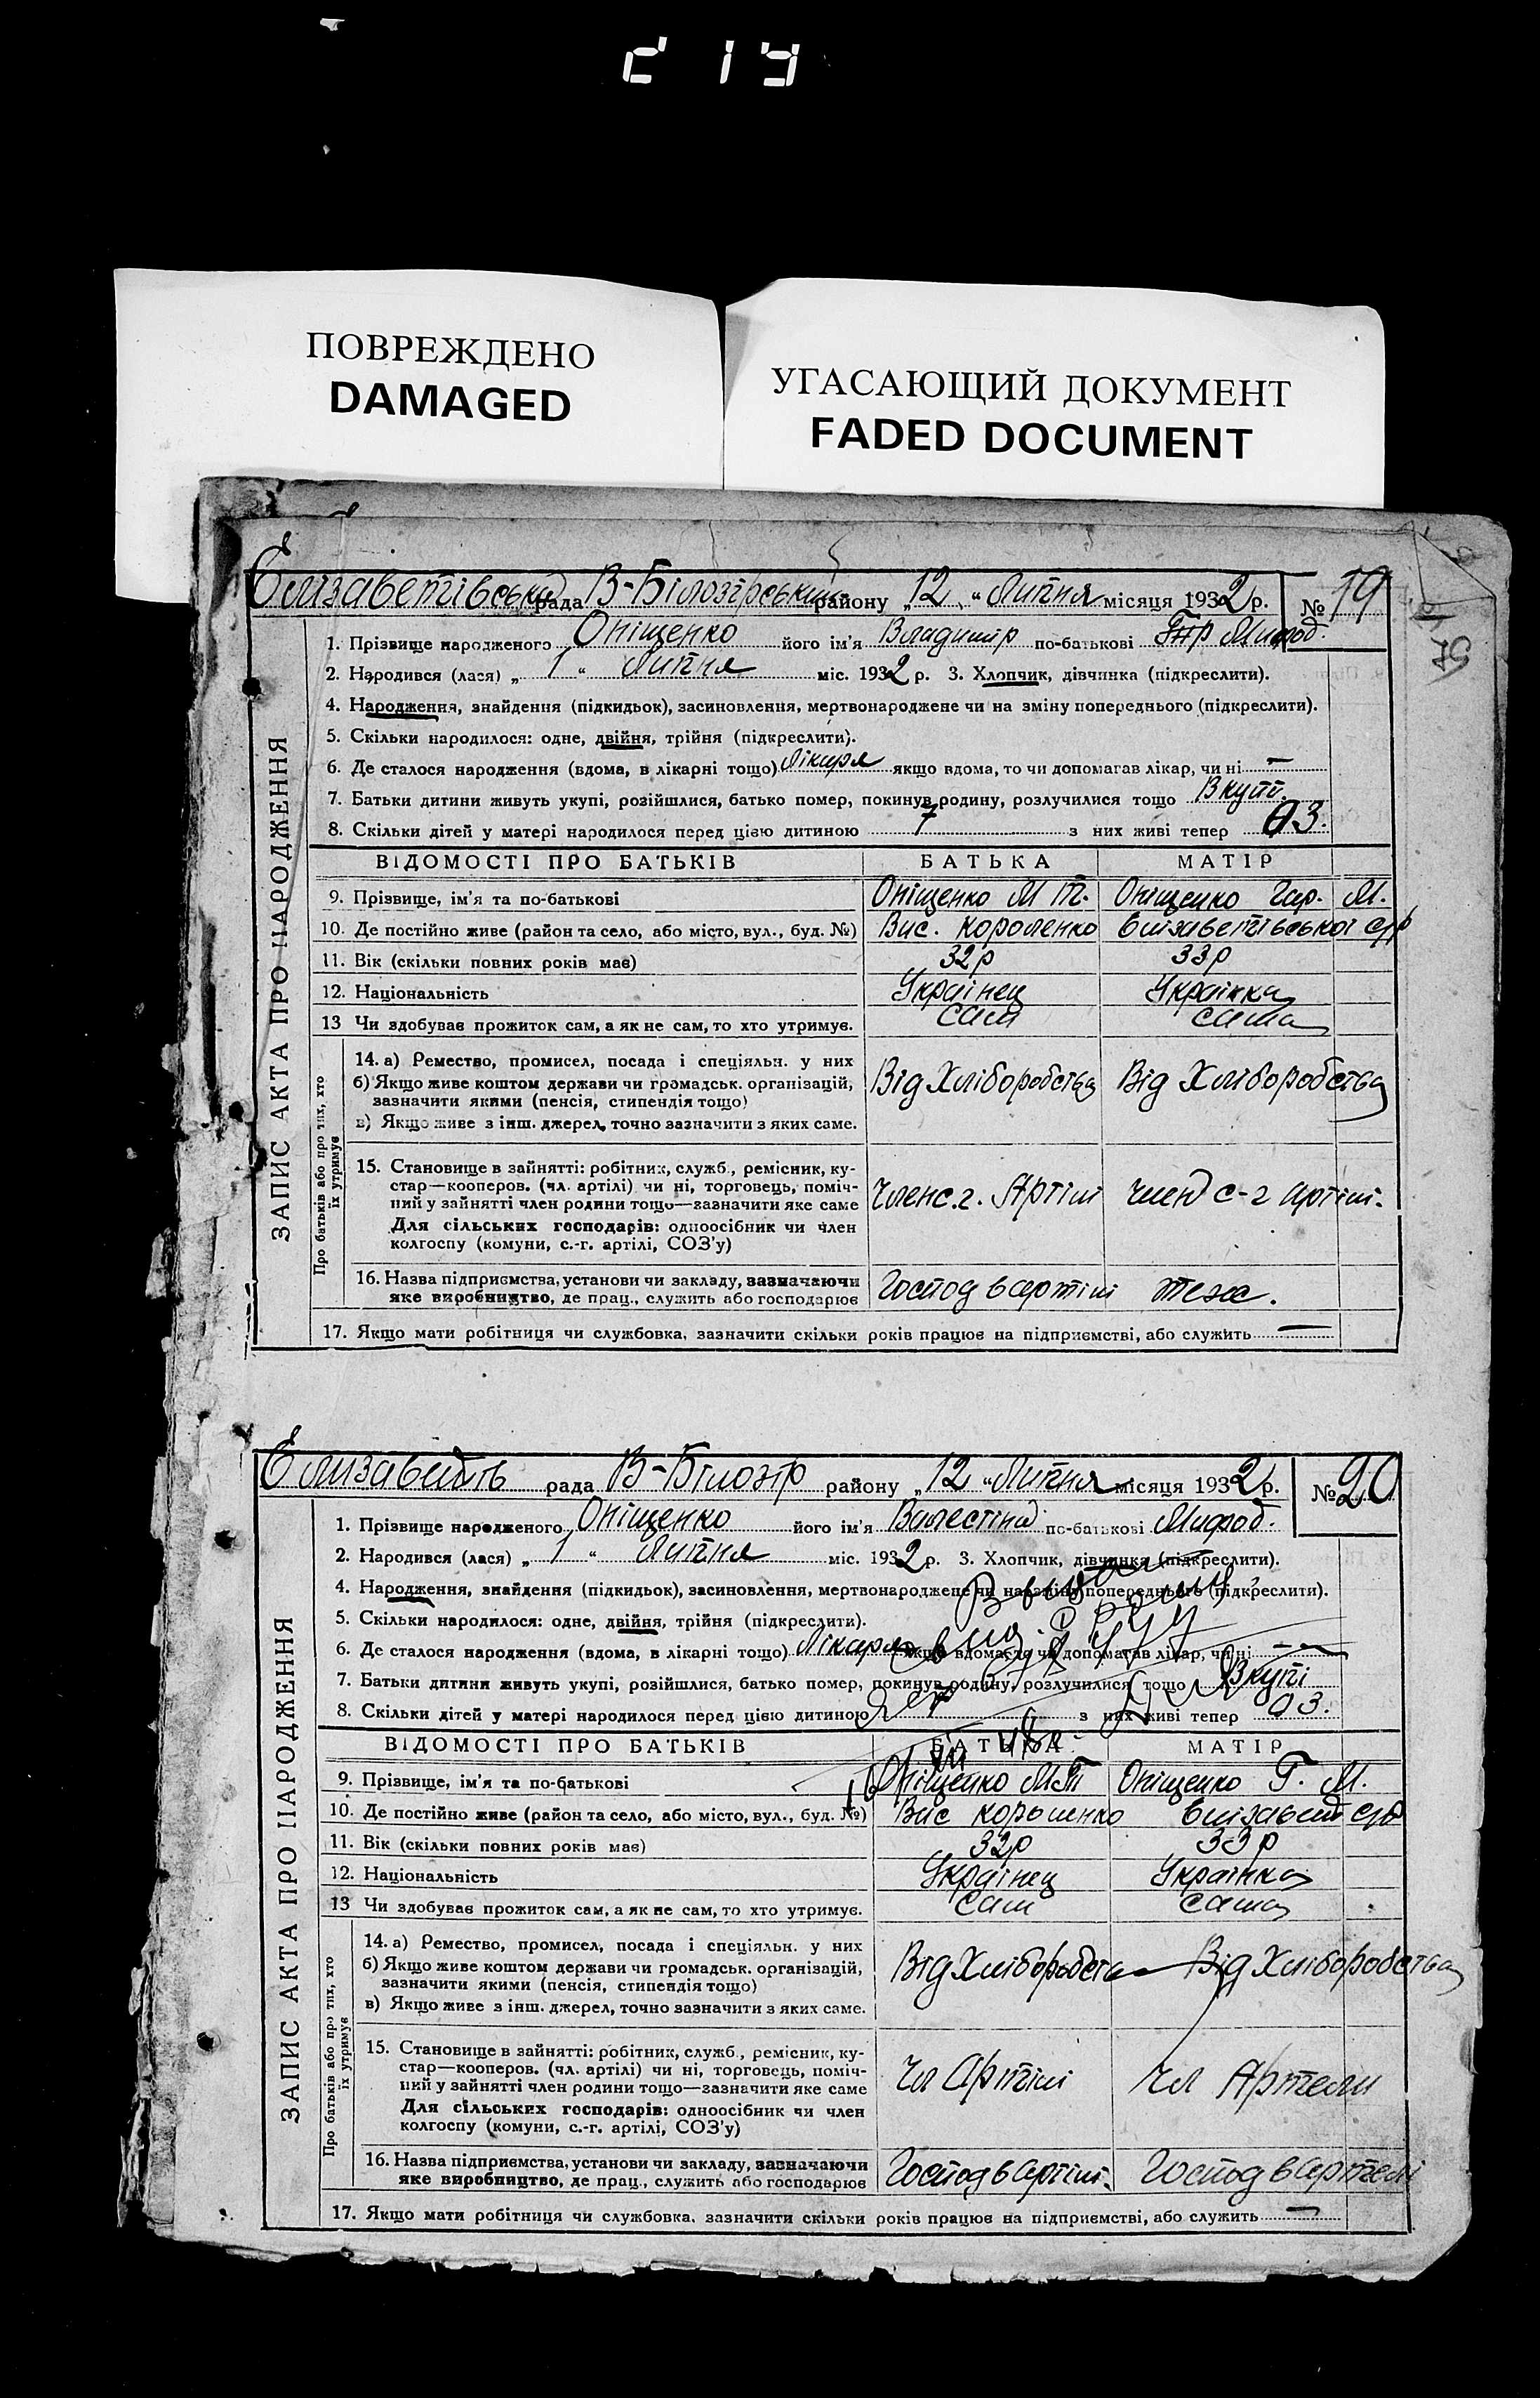 ПОВРЕЖДЕНО
DAMAGED
УГАСАЮЩИЙ ДОКУМЕНТ
FADED DOCUMENT
Єлізаветівська рада В-Білозірський району „12“ Липня місяця 1932 р. № 19
1. Прізвище народженого Оніщенко його ім'я Владимір по-батькові Мифод.
2. Народився (лася) „1“ Липня міс. 1932 р. 3. Хлопчик, дівчинка (підкреслити).
4. Народження, знайдення (підкидьок), засиновлення, мертвонароджене чи на зміну попереднього (підкреслити).
5. Скільки народилося: одне, двійня, трійня (підкреслити).
6. Де сталося народження (вдома, в лікарні тощо) Лікаря якщо вдома, то чи допомагав лікар, чи ні —
7. Батьки дитини живуть укупі, розійшлися, батько помер, покинув родину, розлучилися тощо Вкупі.
8. Скільки дітей у матері народилося перед цією дитиною 7 з них живі тепер 3.
ЗАПИС АКТА ПРО НАРОДЖЕННЯ
ВІДОМОСТІ ПРО БАТЬКІВ БАТЬКА МАТІР
9. Прізвище, ім'я та по-батькові Оніщенко М Т. Оніщенко Гар. М.
10. Де постійно живе (район та село, або місто, вул., буд. №) Вис. Короленко Єлізаветівської с/р
11. Вік (скільки повних років має) 32р 33р
12. Національність Українец Українка
13 Чи здобував прожиток сам, а як не сам, то хто утримує. Сам сама
Про батьків або про тих, хто їх утримує
14. а) Ремество, промисел, посада і спеціяльн. у них
б) Якщо живе коштом держави чи громадськ. організацій,
зазначити якими (пенсія, стипендія тощо)
в) Якщо живе з інш. джерел, точно зазначити з яких саме.
Від Хліборобства Від Хліборобства
15. Становище в зайнятті: робітник, служб., ремісник, ку-
стар—кооперов. (чл. артілі) чи ні, торговець, поміч-
ний у зайнятті член родини тощо—зазначити яке саме
Для сільських господарів: одноосібник чи член
колгоспу (комуни, с.-г. артілі, СОЗ'у)
Член с.г. Артілі член с-г артілі.
16. Назва підприємства, установи чи закладу, зазначаючи
яке виробництво, де прац., служить або господарює
Господ в артілі теж.
17. Якщо мати робітниця чи службовка, зазначити скільки років працює на підприємстві, або служить —
Єлизавет рада В-Білозір району „12“ Липня місяця 1932 р. № 20
1. Прізвище народженого Оніщенко його ім'я по-батькові Мифод.
2. Народився (лася) „1“ Липня міс. 1932 р. 3. Хлопчик, дівчинка (підкреслити).
4. Народження, знайдення (підкидьок), засиновлення, мертвонароджене чи на зміну попереднього (підкреслити).
5. Скільки народилося: одне, двійня, трійня (підкреслити).
6. Де сталося народження (вдома, в лікарні тощо) Лікаря якщо вдома, то чи допомагав лікар, чи ні —
7. Батьки дитини живуть укупі, розійшлися, батько помер, покинув родину, розлучилися тощо Вкупі
8. Скільки дітей у матері народилося перед цією дитиною з них живі тепер 3.
ЗАПИС АКТА ПРО НАРОДЖЕННЯ
ВІДОМОСТІ ПРО БАТЬКІВ БАТЬКА МАТІР
9. Прізвище, ім'я та по-батькові Оніщенко МТ Оніщенко Г. М.
10. Де постійно живе (район та село, або місто, вул., буд. №) Вис Короленко Єлізавет с/р
11. Вік (скільки повних років має) 32р 33р
12. Національність Українец Українка
13 Чи здобував прожиток сам, а як не сам, то хто утримує. Сам сама
Про батьків або про тих, хто їх утримує
14. а) Ремество, промисел, посада і спеціяльн. у них
б) Якщо живе коштом держави чи громадськ. організацій,
зазначити якими (пенсія, стипендія тощо)
в) Якщо живе з інш. джерел, точно зазначити з яких саме.
Від Хліборобства Від Хліборобства
15. Становище в зайнятті: робітник, служб., ремісник, ку-
стар—кооперов. (чл. артілі) чи ні, торговець, поміч-
ний у зайнятті член родини тощо—зазначити яке саме
Для сільських господарів: одноосібник чи член
колгоспу (комуни, с.-г. артілі, СОЗ'у)
Чл Артілі Чл Артели
16. Назва підприємства, установи чи закладу, зазначаючи
яке виробництво, де прац., служить або господарює
Господ в Артілі. Господ в артелі
17. Якщо мати робітниця чи службовка, зазначити скільки років працює на підприємстві, або служить —